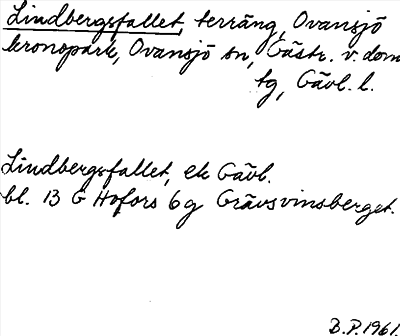 Lindbergsfallet, terräng, Ovansjö
kronopark, Ovansjö sn, Gästr. v. dom
sg, Gävl. l.
Lindbergsfallet, ek Gävl.
bl. 13 G Hofors 6 g Grävsvinsberget.
B.P. 1961.